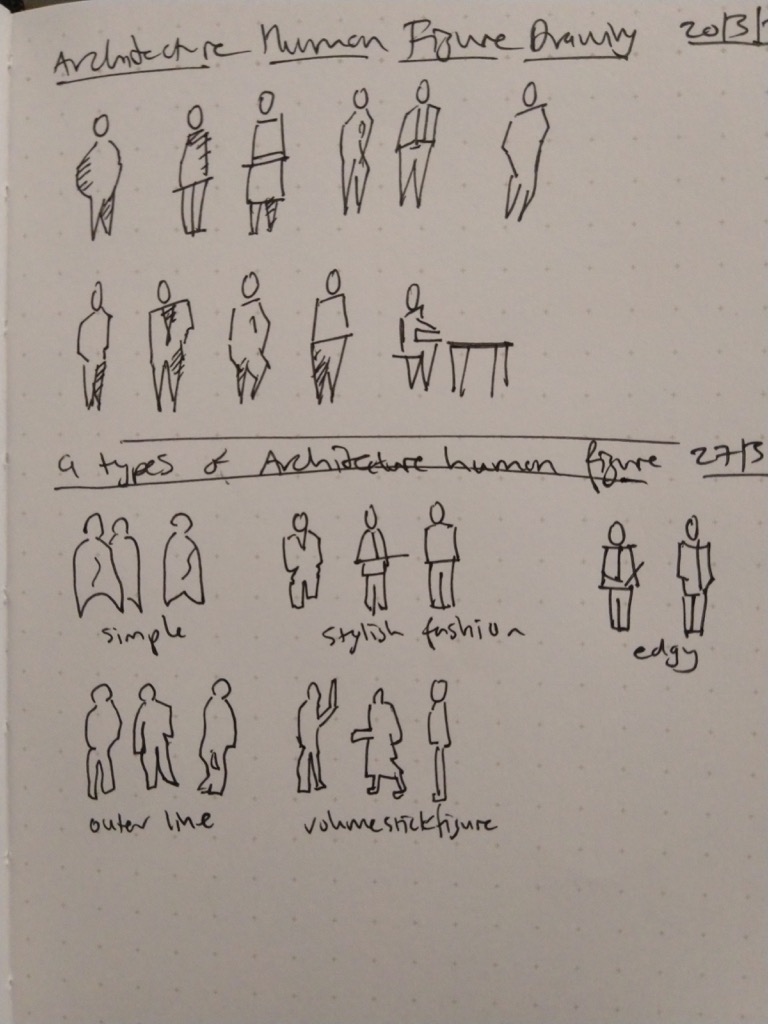 Architecture Human Figure Drawing 20/3/
9 types of Architecture human figure 27/3
simple
stylish fashion
edgy
outer line
volumestickfigure